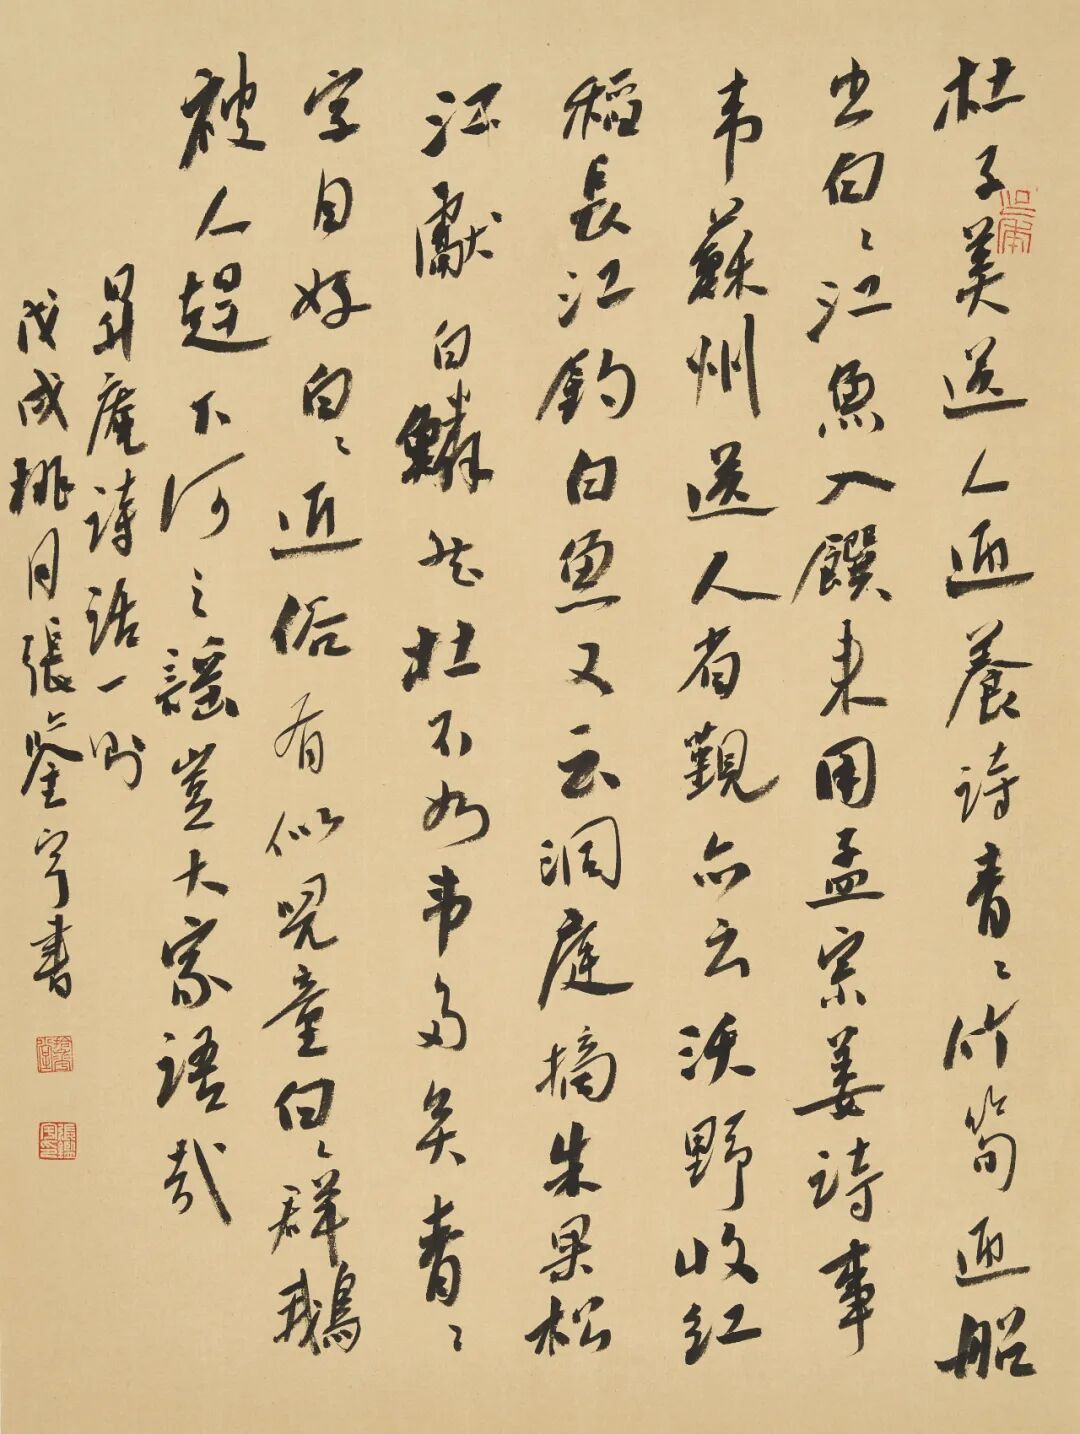 杜子美送人迎養詩青〻竹筍迎船
出白〻江魚入饌來用孟宗姜詩事
韦蘇州送人省觀亦云沃野收红
稻長江釣白魚又云洞庭摘朱果松
江獻白鱗然杜不如韦多矣青〻
字自好白〻近俗有似兒童白〻群鵝
被人趕下河之謠豈大家語哉
昇庵詩話一則
戊戌桃月張鉴宇書